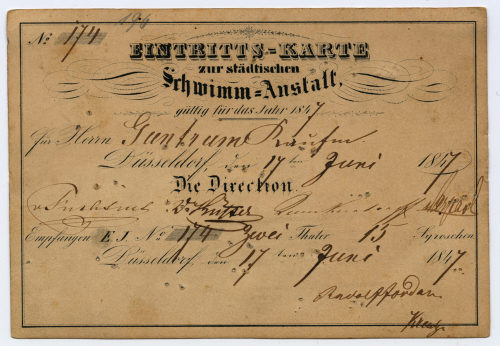 196
No 174
EINTRITTS-KARTE
zur städtischen
Schwimm-Anstalt,
gültig für das Jahr 1847
für Herrn Guntrum Kaufm
Düsseldorf, den 17 ten Juni 1847
Die Direction.
Empfangen E. J. No 174 Zwei Thaler 15 Sgroschen
Düsseldorf, den 17 ten Juni 1847.
Rudolf Jordan